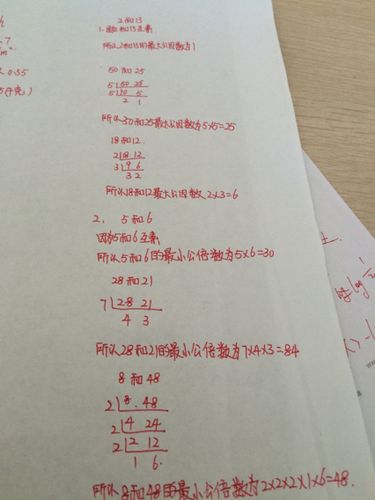 2和13
1. 因为2和13互素
所以2和13的最大公因数为1
50 和 25
5 50 25
5 10 5
2 1
所以50和25最大公因数为5×5=25
18和12
2 18 12
3 9 6
3 2
所以18和12最大公因数 2×3=6
2. 5和6
因为5和6互素
所以5和6的最小公倍数为5×6=30
28和21
7 28 21
4 3
所以28和21的最小公倍数为7×4×3=84
8 和 48
2 8 . 48
2 4 24
2 2 12
1 6
所以8和48的最小公倍数为2×2×2×1×6=48.
log